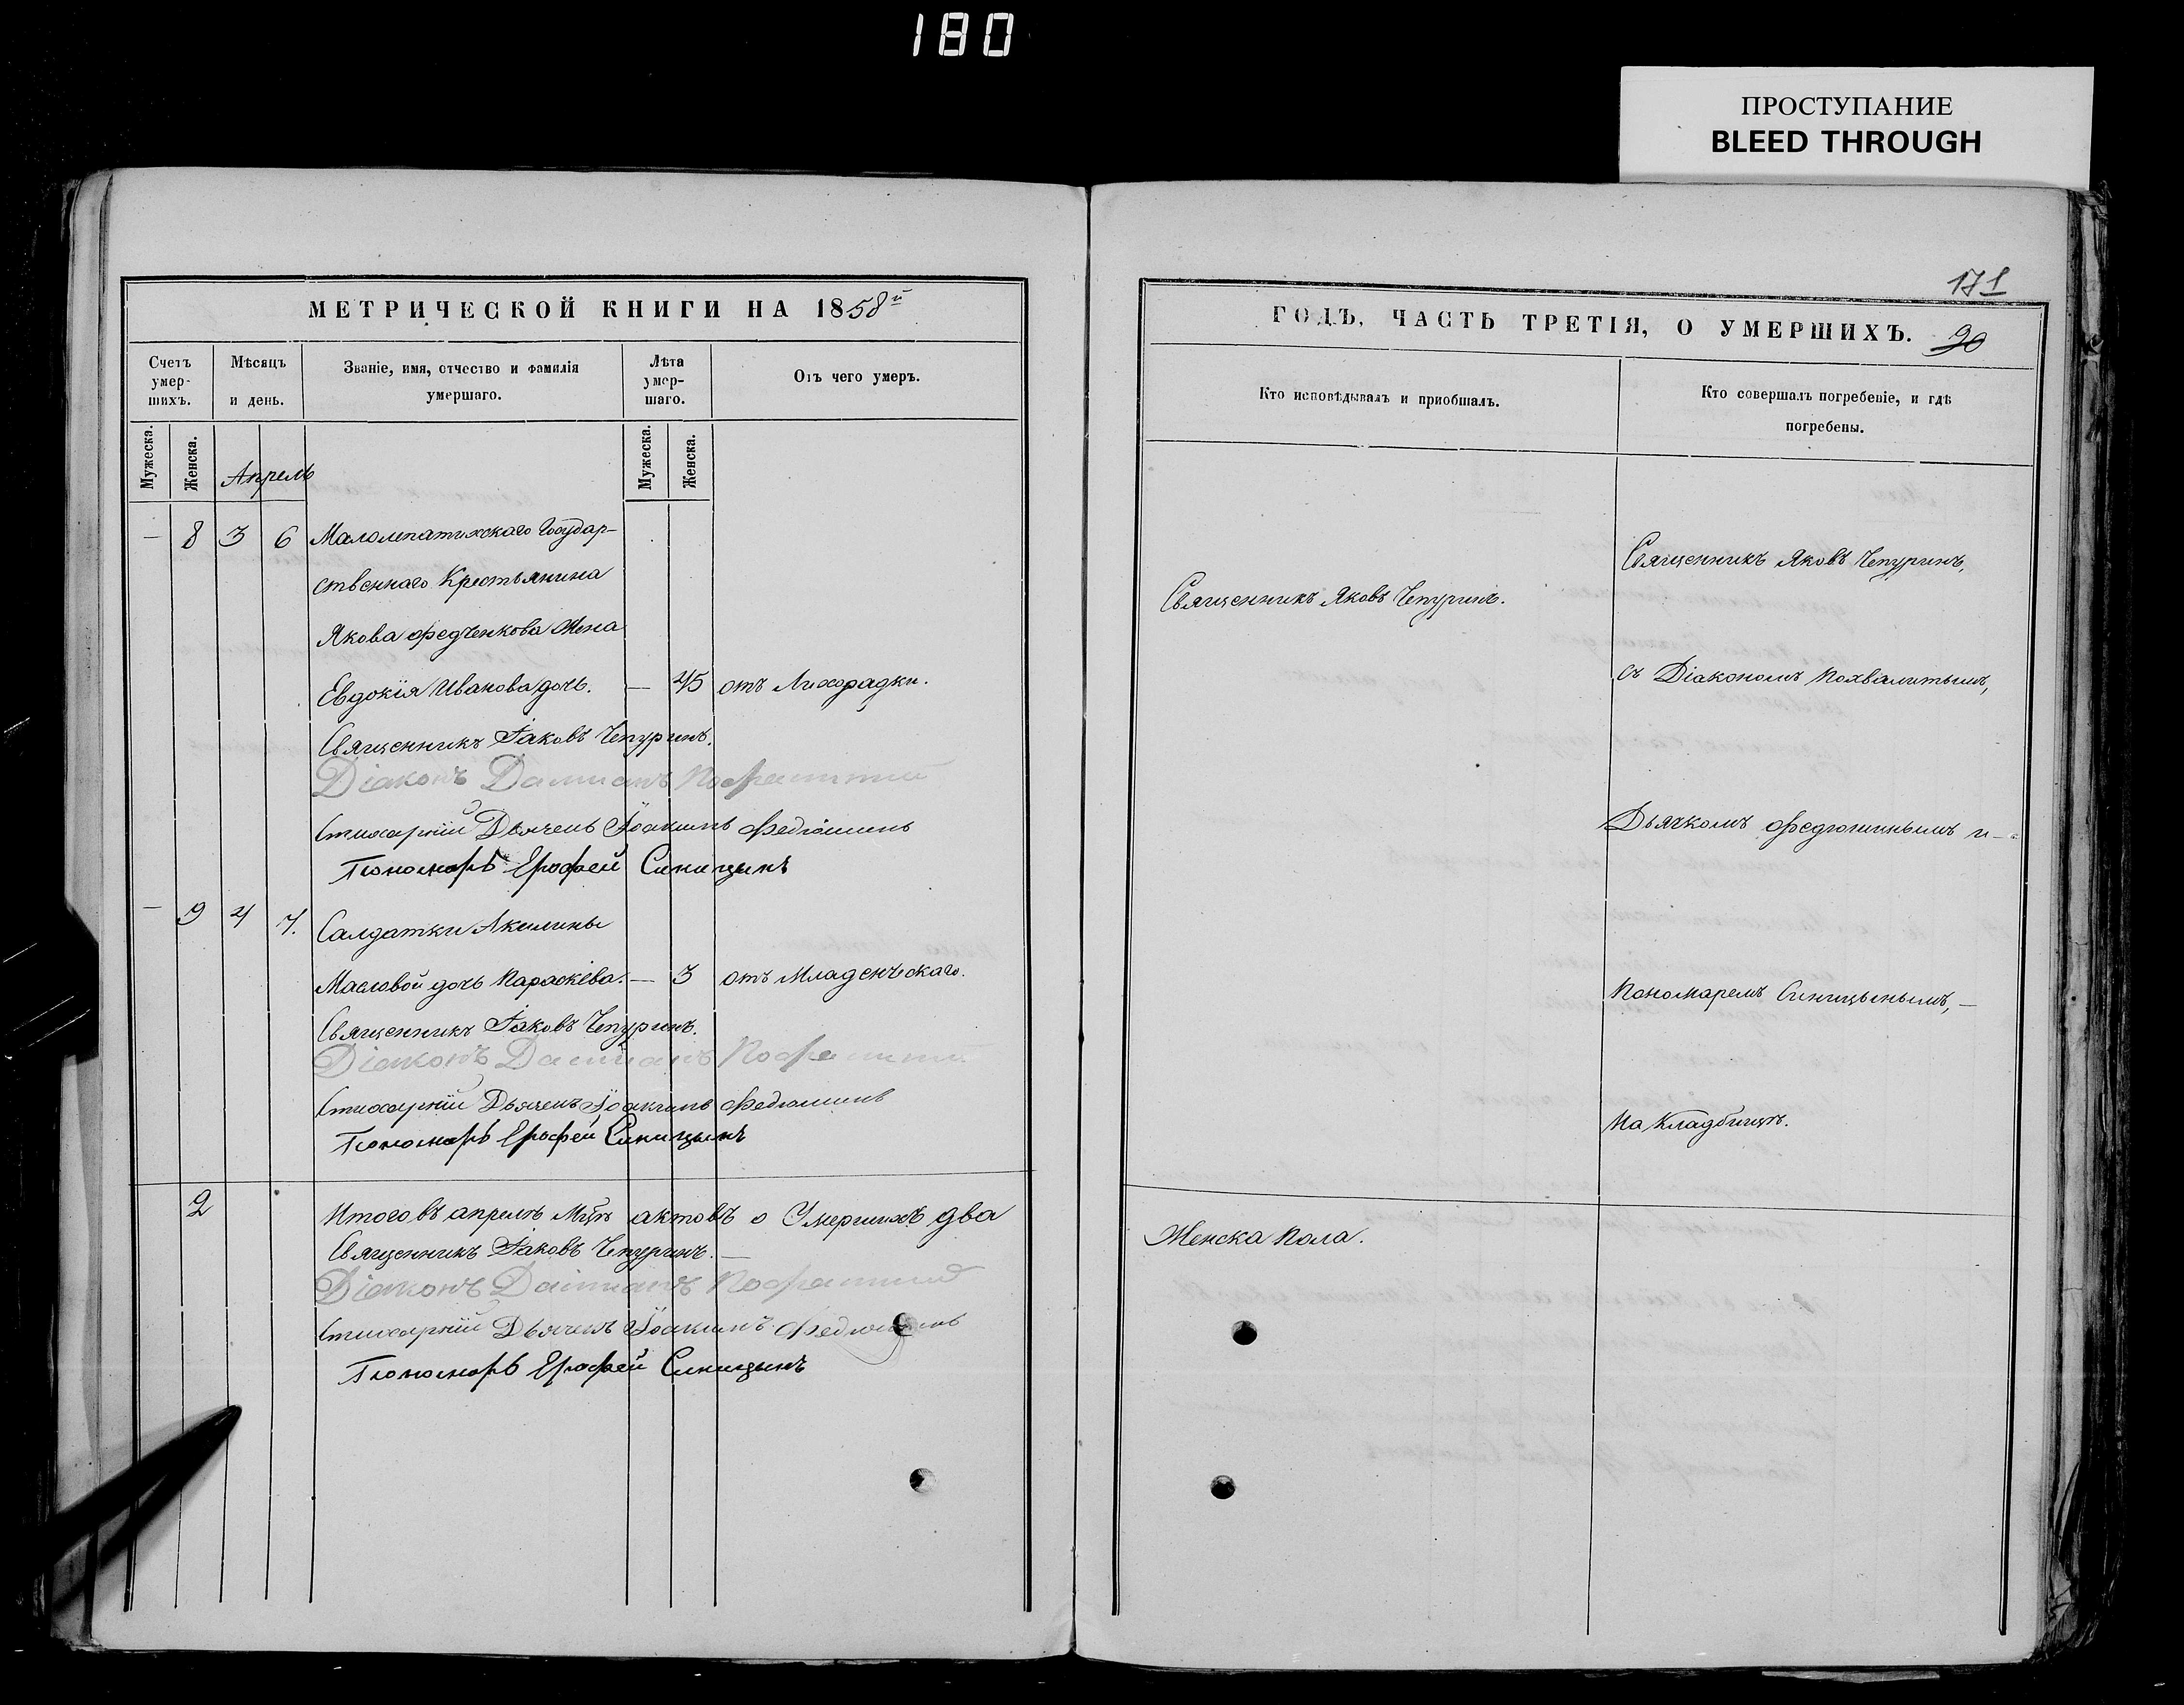 180
ПРОСТУПАНИЕ
BLEED THROUGH
МЕТРИЧЕСКОЙ КНИГИ НА 1858й
Счетъ умер-шихъ.
Мѣсяцъ и день.
Званіе, имя, отчество и фамилія умершаго.
Лѣта умер-шаго.
Отъ чего умеръ.
Мужеска.
Женска.
Апрель
Мужеска.
Женска.
— 8 3 6 Государ-
ственнаго Крестьянина
Якова Федченкова Жена
Евдокія Иванова дочь. — 45 отъ Лихорадки.
Священникъ Іаковъ Чепуринъ.
Діаконъ Даміанъ
Стихарный Дьячекъ Іоакимъ Федюшинъ
Пономарь Ерофей Синицынъ
— 9 4 7. Салдатки Акилины
Масловой дочь Параскева. — 3 отъ Младенческаго.
Священникъ Іаковъ Чепуринъ.
Діаконъ Даміанъ
Стихарный Дьячекъ Іоакимъ Федюшинъ
Пономарь Ерофей Синицынъ
2 Итого въ апрелѣ Мцѣ актовъ о Умершихъ два
Священникъ Іаковъ Чепуринъ. —
Діаконъ Даміанъ
Стихарный Дьячекъ Іоакимъ Федюшинъ
Пономарь Ерофей Синицынъ
171
ГОДЪ, ЧАСТЬ ТРЕТІЯ, О УМЕРШИХЪ. 90
Кто исповѣдывалъ и приобщалъ.
Кто совершалъ погребеніе, и гдѣ погребены.
Священникъ Яковъ Чепуринъ.
Священникъ Яковъ Чепуринъ,
съ Діакономъ Похвалитымъ,
Дьячкомъ Федюшинымъ и —
Пономаремъ Синицынымъ, —
на Кладбищѣ.
Женска Пола.